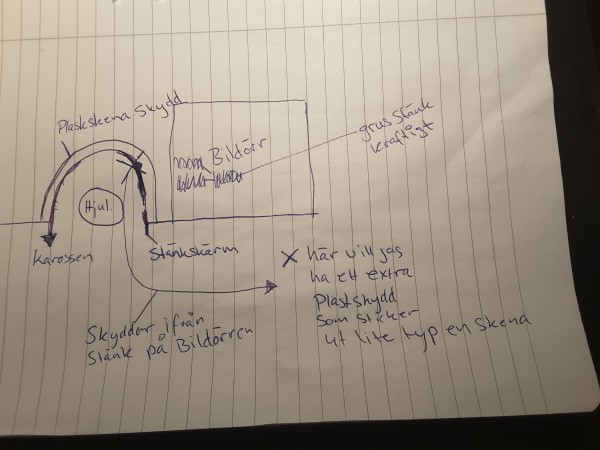 Plastskena Skydd
Bildörr
grus stänk
kraftigt
Hjul.
Karossen
Stänkskärm
X här vill jag
ha ett extra
Plastskydd
som sticker
ut lite typ en skena
Skyddar ifrån
Stänk på Bildörren